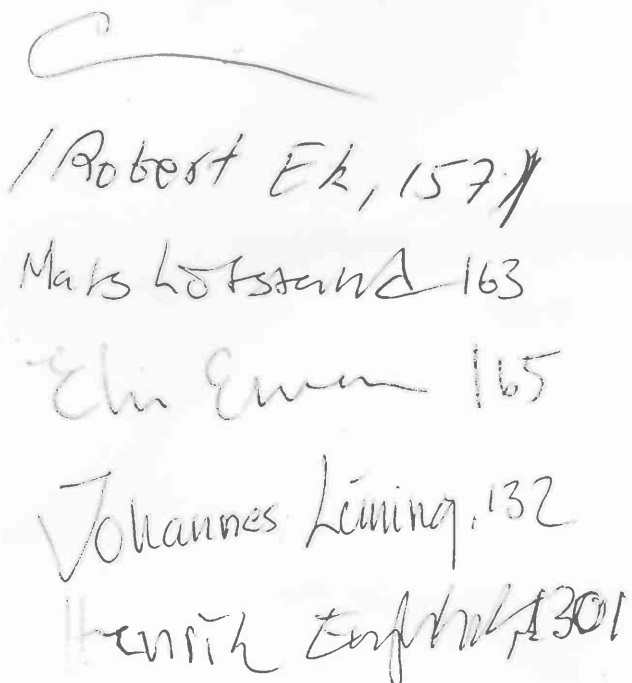 Robert Ek, 157
Mats Löfstrand 163
Elin 165
Johannes Lüning, 132
Henrik 1301